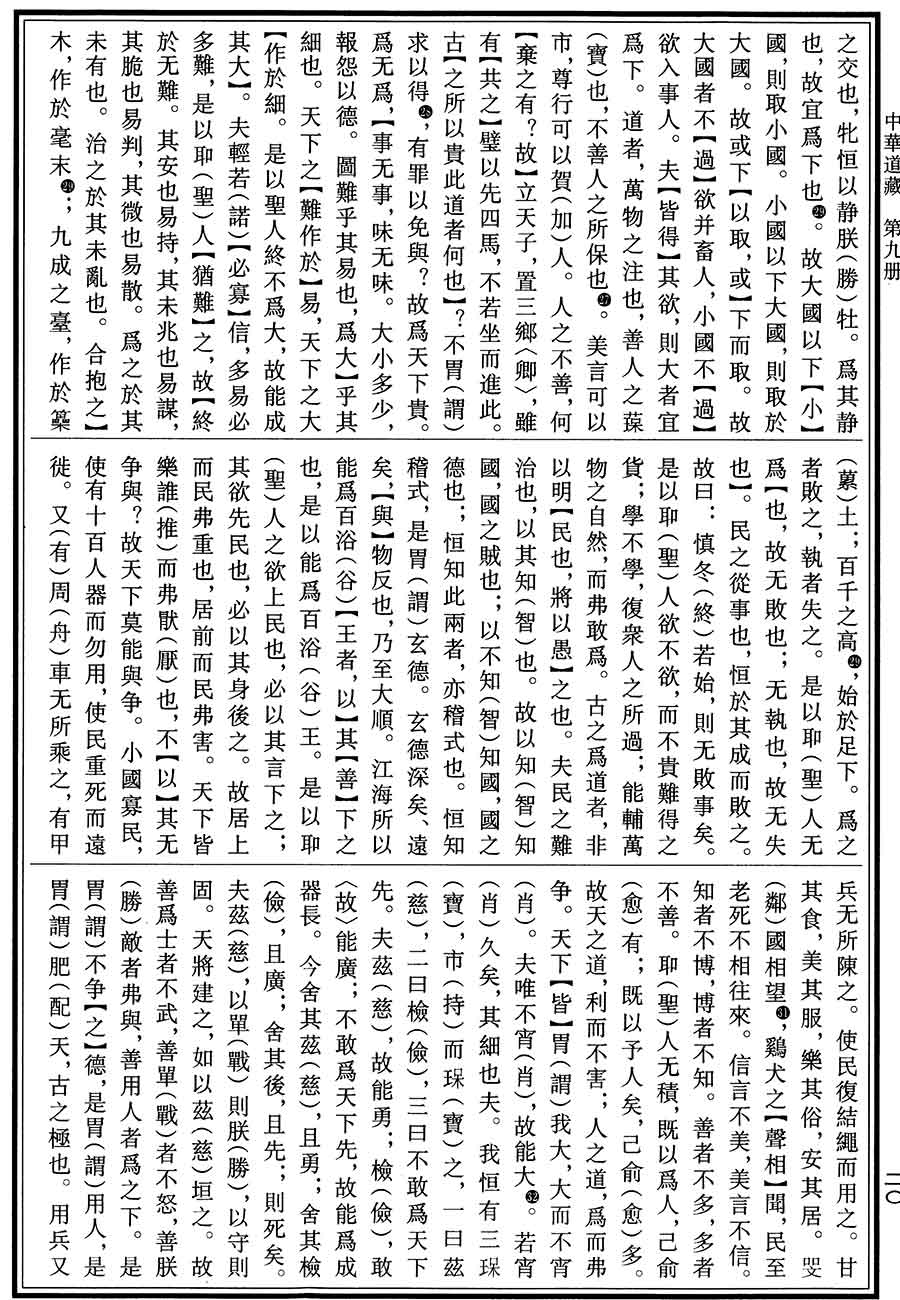 中華道藏 第九册
二〇
之交也，牝恒以静朕（勝）牡。爲其静
也，故宜爲下也㉙。故大國以下【小】
國，則取小國。小國以下大國，則取於
大國。故或下【以取，或】下而取。故
大國者不【過】欲并畜人，小國不【過】
欲入事人。夫【皆得】其欲，則大者宜
爲下。道者，萬物之注也，善人之葆
（寶）也，不善人之所保也㉗。美言可以
市，尊行可以賀（加）人。人之不善，何
【棄之有？故】立天子，置三鄉〈卿〉，雖
有【共之】璧以先四馬，不若坐而進此。
古【之所以貴此道者何也】？不胃（謂）
求以得㉘，有罪以免與？故爲天下貴。
爲无爲，【事无事，味无味。大小多少，
報怨以德。圖難乎其易也，爲大】乎其
細也。天下之【難作於】易，天下之大
【作於細。是以聖人終不爲大，故能成
其大】。夫輕若（諾）【必寡】信，多易必
多難，是以耶（聖）人【猶難】之，故【終
於无難。其安也易持，其未兆也易謀，
其脆也易判，其微也易散。爲之於其
未有也。治之於其未亂也。合抱之】
木，作於毫末㉙；九成之臺，作於虆
（蔂）土；百千之高㉚，始於足下。爲之
者敗之，執者失之。是以耶（聖）人无
爲【也，故无敗也；无執也，故无失
也】。民之從事也，恒於其成而敗之。
故曰：慎冬（終）若始，則无敗事矣。
是以耶（聖）人欲不欲，而不貴難得之
貨；學不學，復衆人之所過；能輔萬
物之自然，而弗敢爲。古之爲道者，非
以明【民也，將以愚】之也。夫民之難
治也，以其知（智）也。故以知（智）知
國，國之賊也；以不知（智）知國，國之
德也；恒知此兩者，亦稽式也。恒知
稽式，是胃（謂）玄德。玄德深矣、遠
矣，【與】物反也，乃至大順。江海所以
能爲百浴（谷）【王者，以】其【善】下之
也，是以能爲百浴（谷）王。是以耶
（聖）人之欲上民也，必以其言下之；
其欲先民也，必以其身後之。故居上
而民弗重也，居前而民弗害。天下皆
樂誰（推）而弗猒（厭）也，不【以】其无
争與？故天下莫能與争。小國寡民，
使有十百人器而勿用，使民重死而遠
徙。又（有）周（舟）車无所乘之，有甲
兵无所陳之。使民復結繩而用之。甘
其食，美其服，樂其俗，安其居。㗬
（鄰）國相望㉛，鷄犬之【聲相】聞，民至
老死不相往來。信言不美，美言不信。
知者不博，博者不知。善者不多，多者
不善。耶（聖）人无積，既以爲人，己俞
（愈）有；既以予人矣，己俞（愈）多。
故天之道，利而不害；人之道，爲而弗
争。天下【皆】胃（謂）我大，大而不宵
（肖）。夫唯不宵（肖），故能大㉜。若宵
（肖）久矣，其細也夫。我恒有三琛
（寶），市（持）而琛（寶）之，一曰兹
（慈），二曰檢（儉），三曰不敢爲天下
先。夫兹（慈），故能勇；檢（儉），敢
〈故〉能廣；不敢爲天下先，故能爲成
器長。今舍其兹（慈），且勇；舍其檢
（儉），且廣；舍其後，且先；則死矣。
夫兹（慈），以單（戰）則朕（勝），以守則
固。天將建之，如以兹（慈）垣之。故
善爲士者不武，善單（戰）者不怒，善朕
（勝）敵者弗與，善用人者爲之下。是
胃（謂）不争【之】德，是胃（謂）用人，是
胃（謂）肥（配）天，古之極也。用兵又